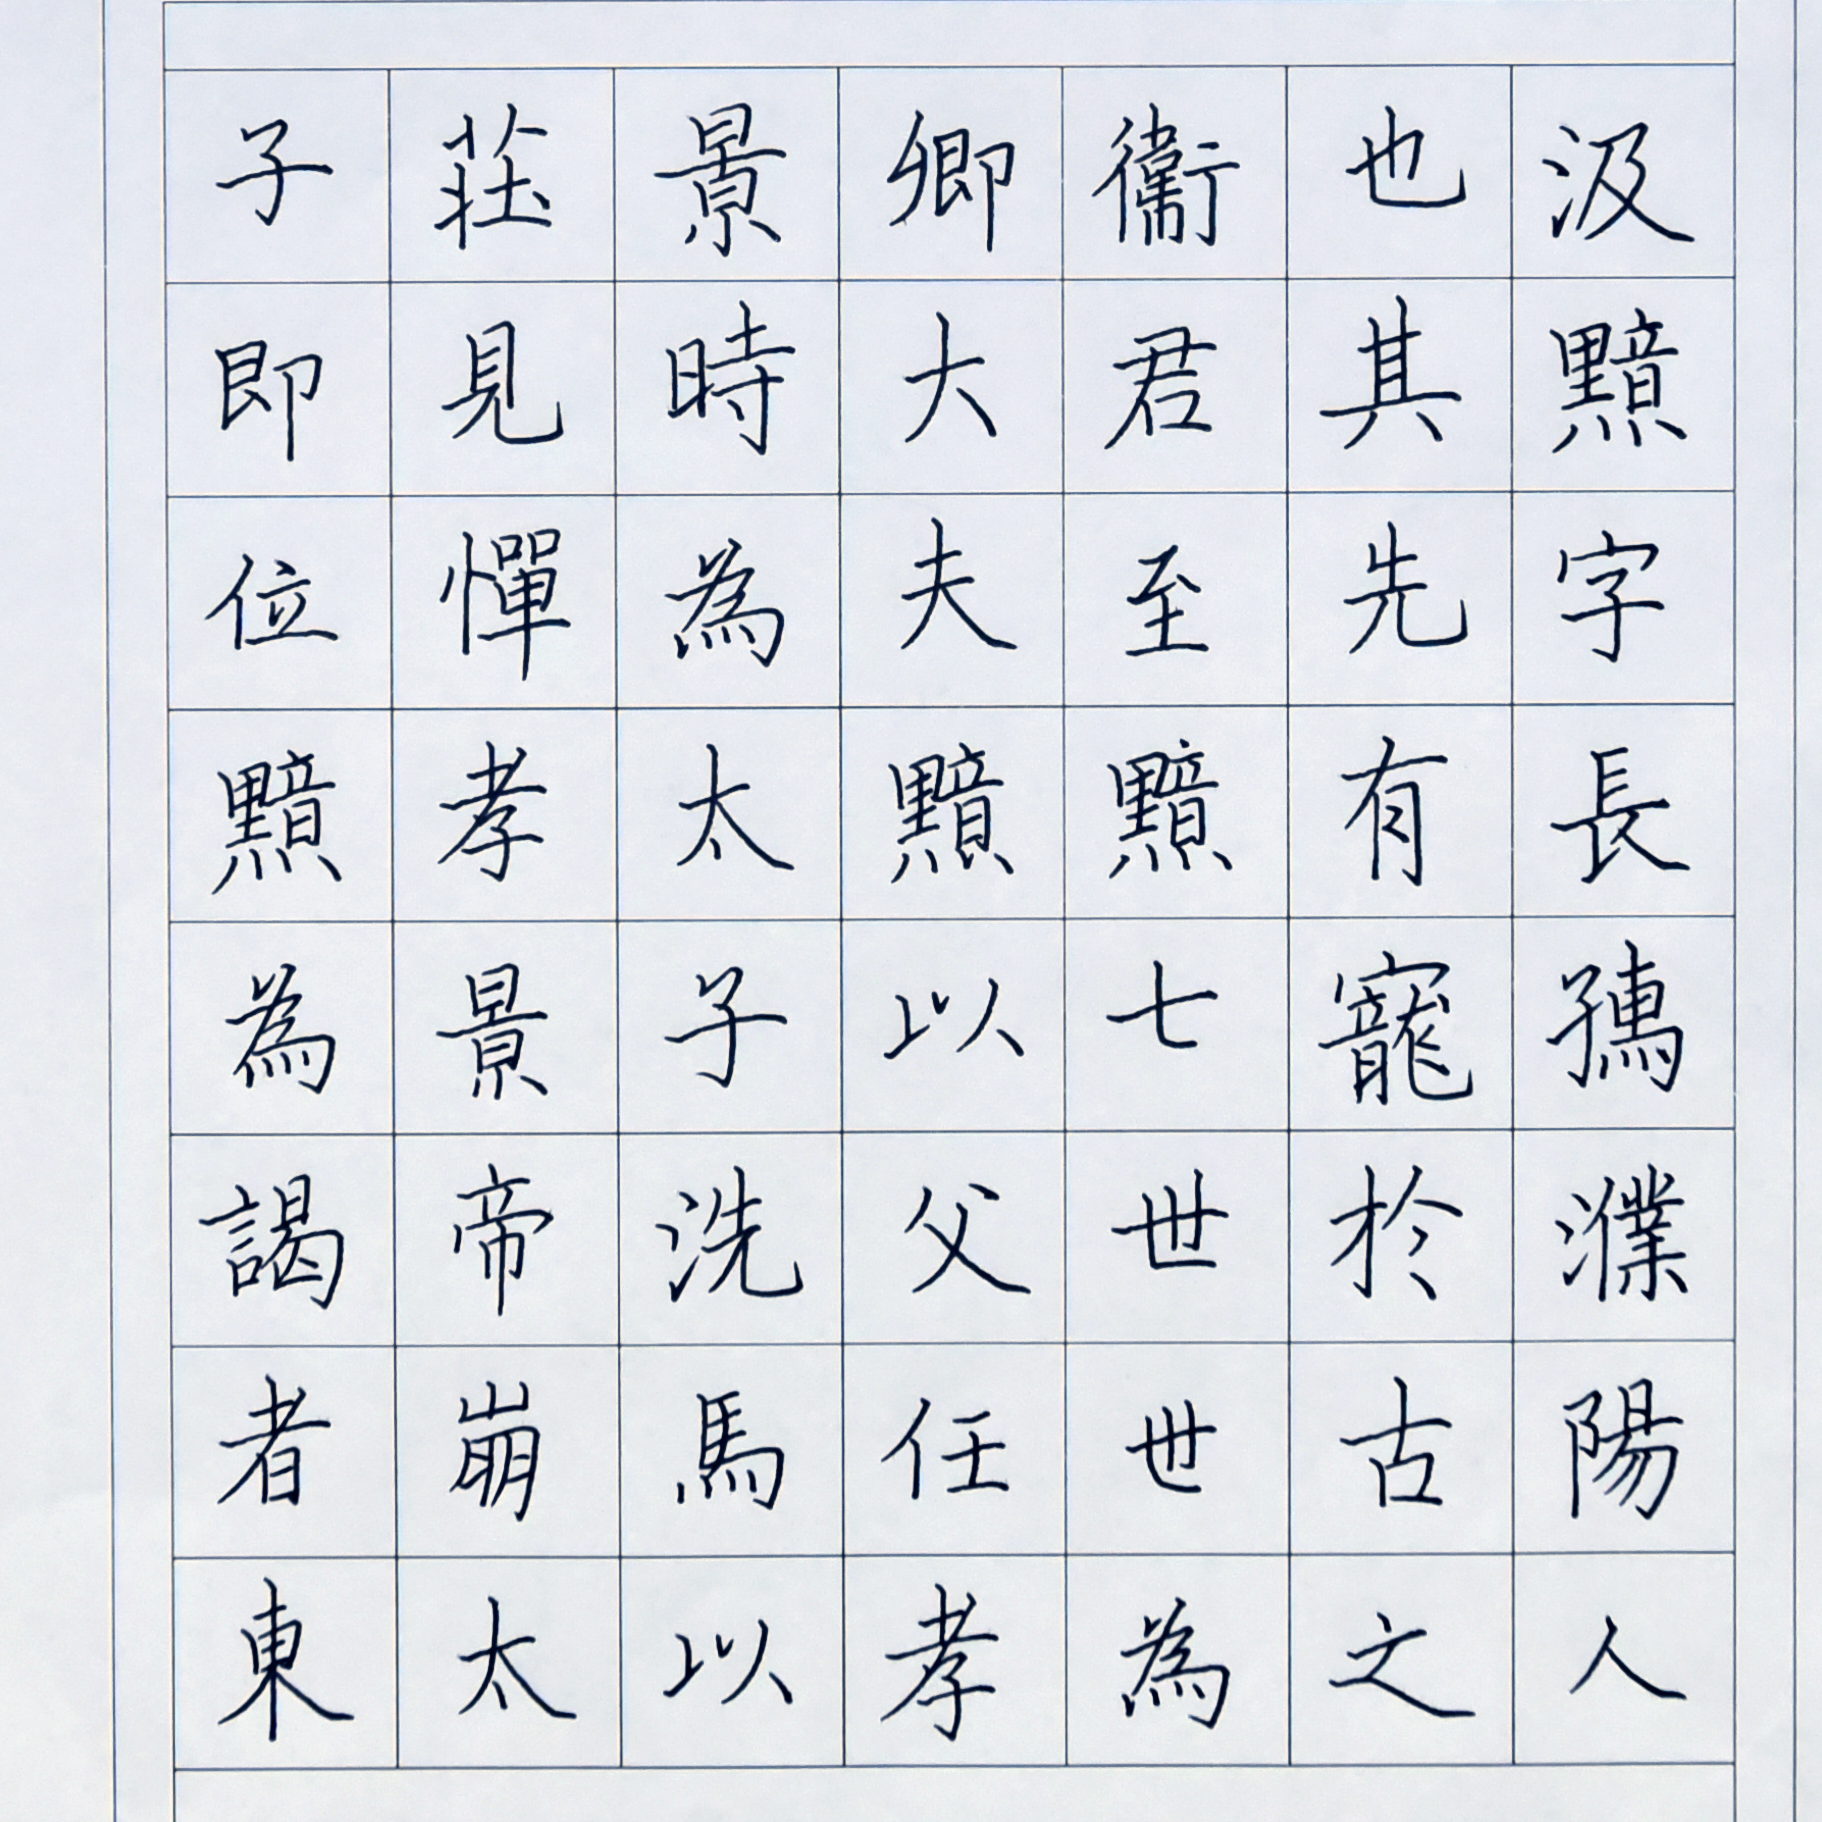 汲黯字長孺濮陽人
也其先有寵於古之
衞君至黯七世世為
卿大夫黯以父任孝
景時為太子洗馬以
莊見憚孝景帝崩太
子即位黯為謁者東